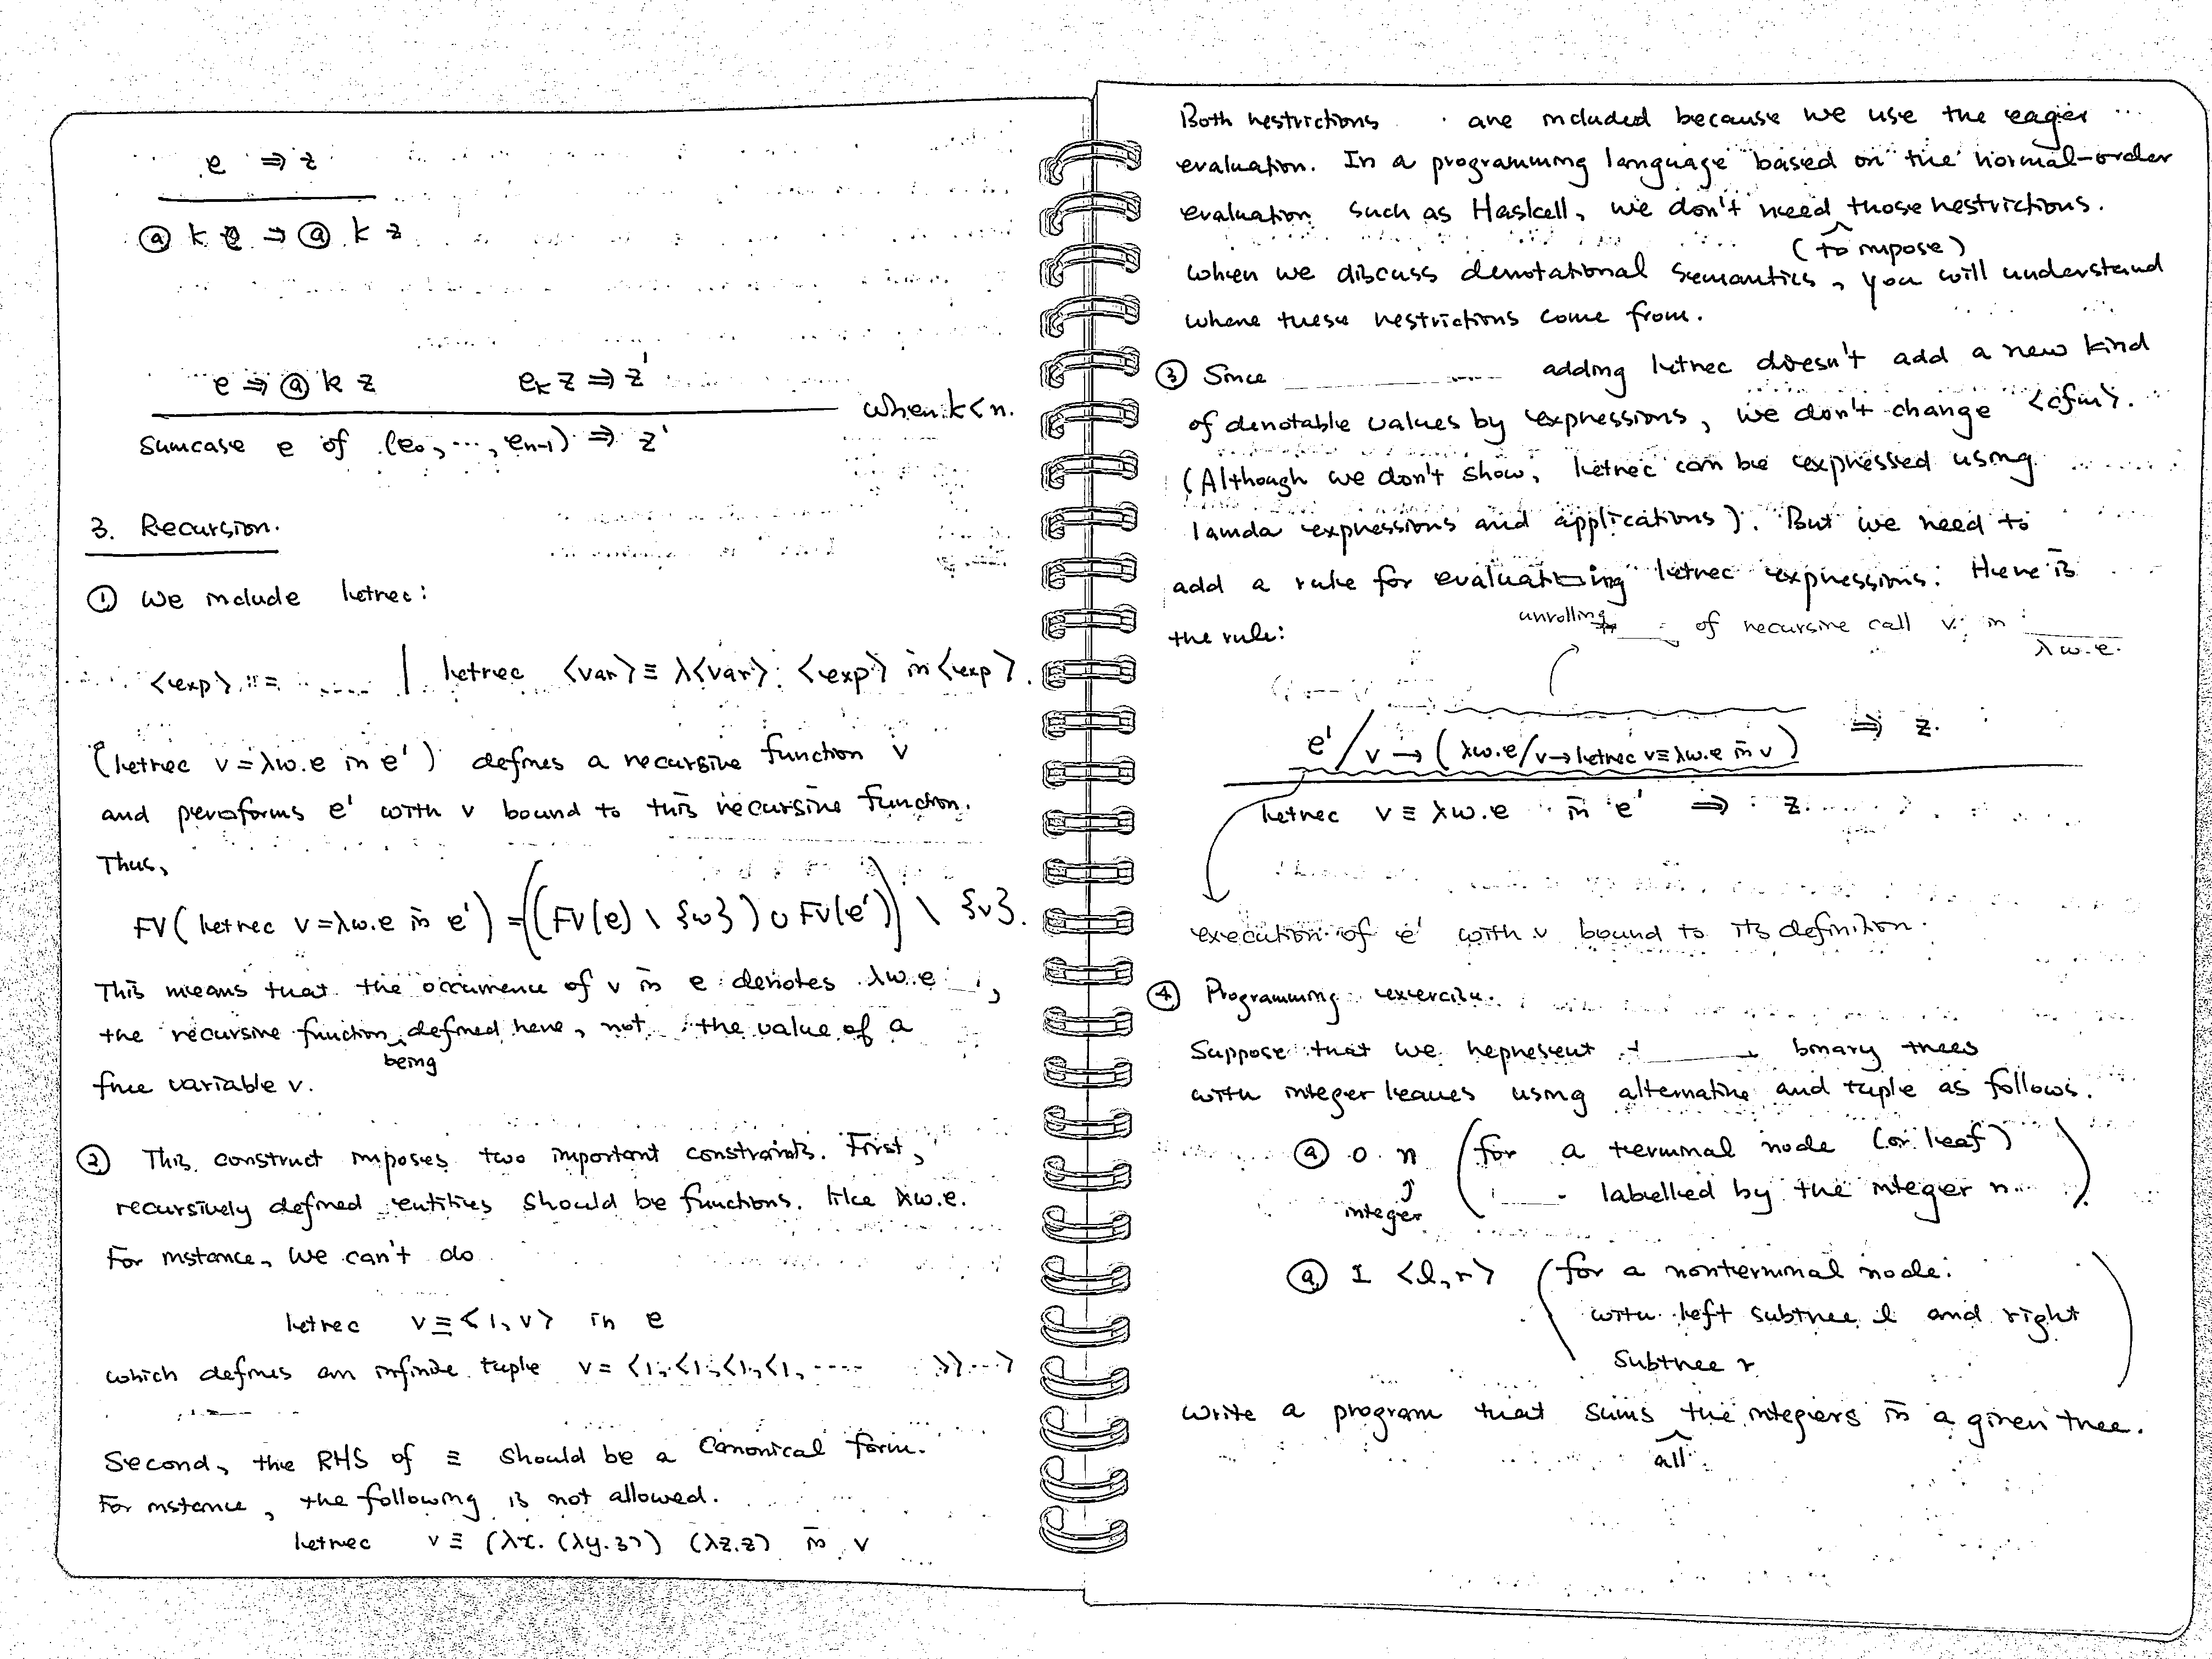 e ⇒ z
@ k e ⇒ @ k z
e ⇒ @ k z    e_k z ⇒ z'
when k < n.
sumcase e of (e₀, ⋯, e_{n-1}) ⇒ z'
3. Recursion.
① We include letrec:
<exp> ::= ..... | letrec <var> ≡ λ<var>. <exp> in <exp>.
(letrec v = λw.e in e') defines a recursive function v
and performs e' with v bound to this recursive function.
Thus,
FV( letrec v = λw.e in e' ) = ((FV(e) \ {w}) ∪ FV(e')) \ {v}.
This means that the occurrence of v in e denotes λw.e,
the recursive function defined here, not the value of a
being
free variable v.
② This construct imposes two important constraints. First,
recursively defined entities should be functions. like λw.e.
For instance, we can't do
letrec v ≡ <1, v> in e
which defines an infinite tuple v = <1, <1, <1, <1, .... >>...>
Second, the RHS of ≡ should be a canonical form.
For instance, the following is not allowed.
letrec v ≡ (λx. (λy.3)) (λz.z) in v
Both restrictions are included because we use the eager
evaluation. In a programming language based on the normal-order
evaluation such as Haskell, we don't need those restrictions.
(to impose)
When we discuss denotational semantics, you will understand
where these restrictions come from.
③ Since adding letrec doesn't add a new kind
of denotable values by expressions, we don't change <cfm>.
(Although we don't show, letrec can be expressed using
lamda expressions and applications). But we need to
add a rule for evaluating letrec expressions. Here is
the rule:
unrolling of recursive call v in λw.e.
e' / v → (λw.e / v → letrec v ≡ λw.e in v) ⇒ z.
letrec v ≡ λw.e in e' ⇒ z.
execution of e' with v bound to its definition.
④ Programming excercise.
Suppose that we represent binary trees
with integer leaves using alternative and tuple as follows.
@ 0 n (for a terminal node (or leaf)
↑
integer
labelled by the integer n.)
@ 1 <l, r> (for a nonterminal node
with left subtree l and right
subtree r)
Write a program that sums the integers in a given tree.
all